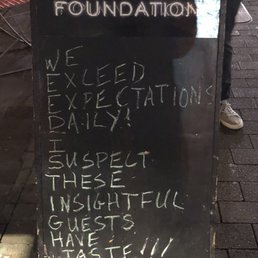 FOUNDATION
WE
EXCEED
EXPECTATIONS
DAILY!
I
SUSPECT
THESE
INSIGHTFUL
GUESTS
HAVE
TASTE!!!